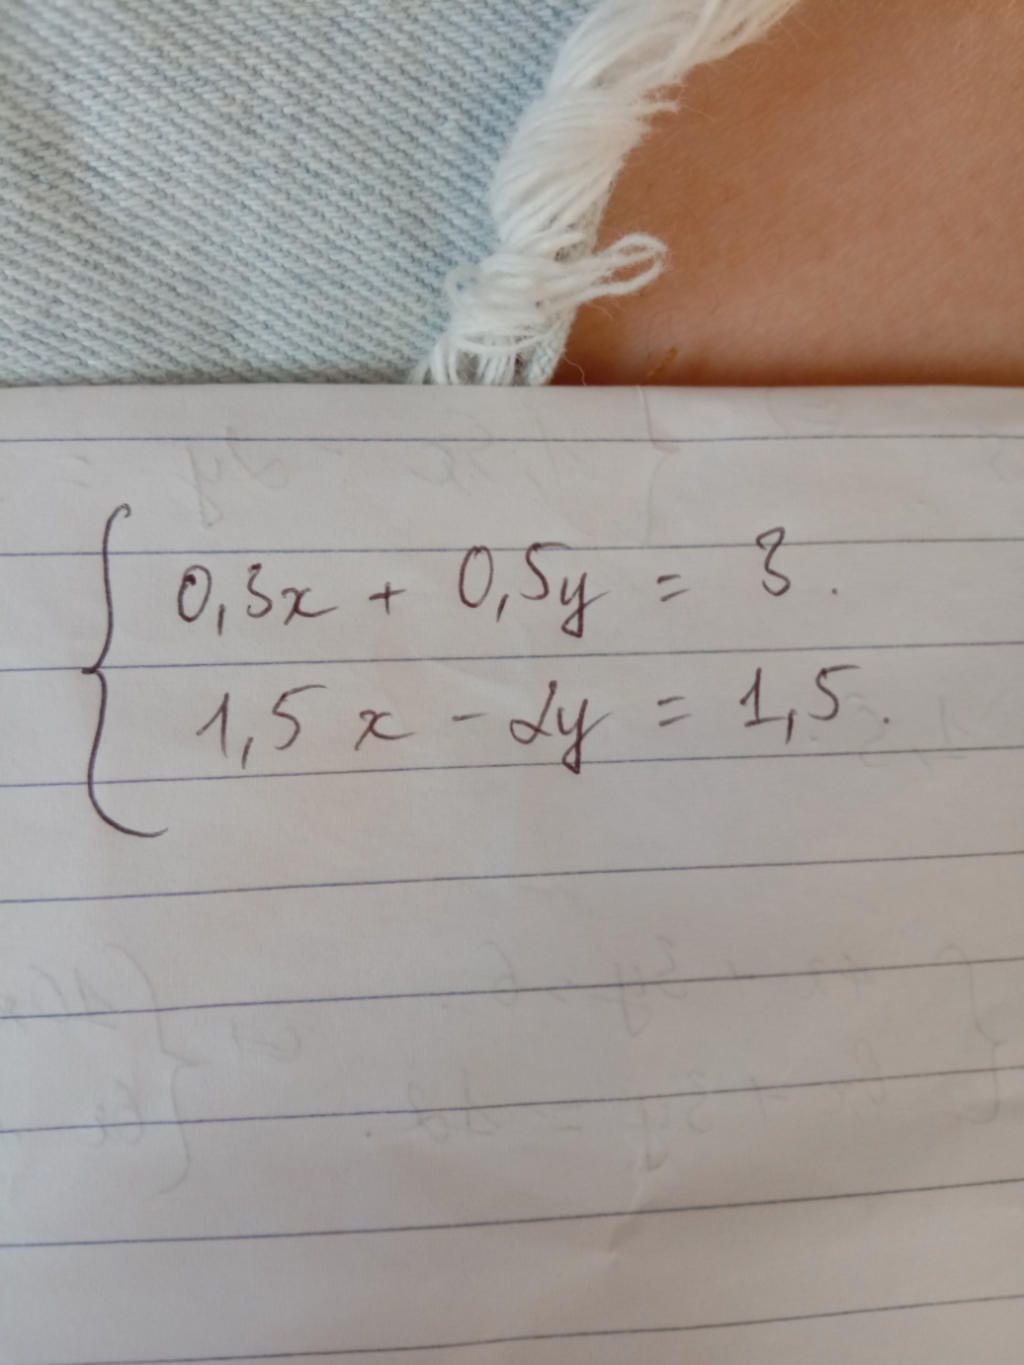 0,3x + 0,5y = 3.
1,5x - 2y = 1,5.